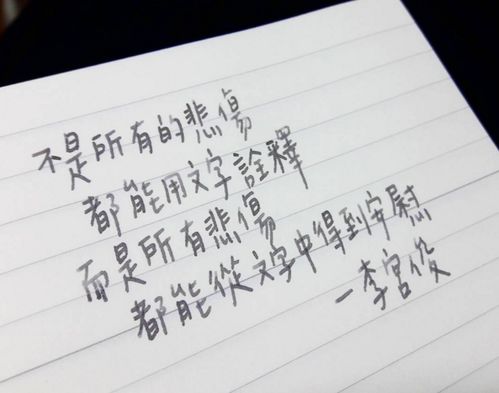 不是所有的悲傷
都能用文字詮釋
而是所有悲傷
都能從文字中得到安慰
—李宮俊